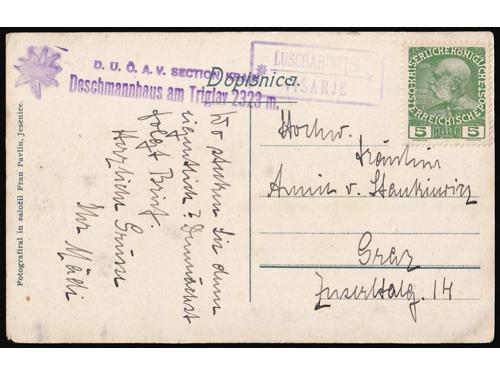 D. U. Ö. A. V. SECTION KRAIN
Deschmannhaus am Triglav 2323 m.
Dopisnica.
LUSCHARIBERG
VIŠARJE
KAISERLICHE KÖNIGLICHE ÖSTERREICHISCHE POST
5 HELLER 5
Fotografiral in založil Fran Pavlin, Jesenice.
Wo stecken Sie denn
eigentlich? Demnächst
folgt Brief.
Herzliche Grüsse
Ihr Mädi
Hochw.
Fräulein
Annie v. Stankiewicz
Graz
14